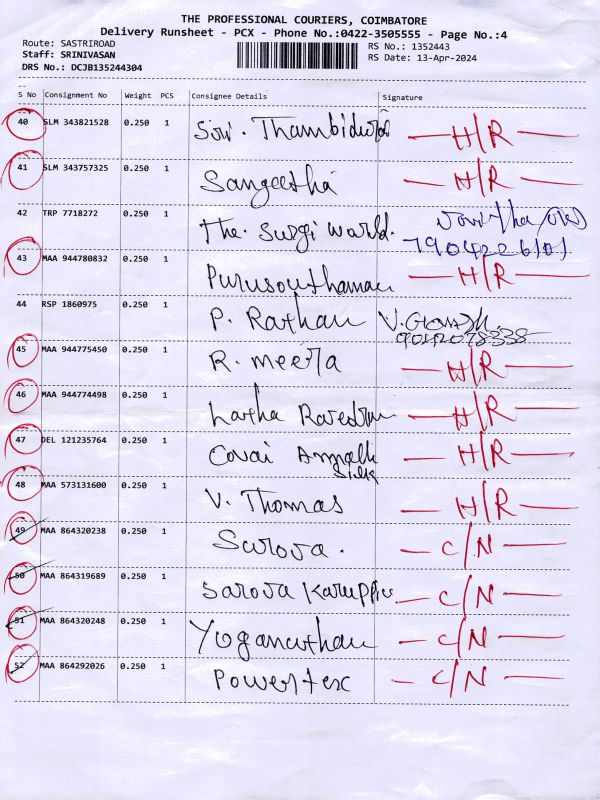 THE PROFESSIONAL COURIERS, COIMBATORE
Delivery Runsheet - PCX - Phone No.:0422-3505555 - Page No.:4
Route: SASTRIROAD RS No.: 1352443
Staff: SRINIVASAN RS Date: 13-Apr-2024
DRS No.: DCJB135244304
S No Consignment No Weight PCS Consignee Details Signature
40 SLM 343821528 0.250 1 H/R
41 SLM 343757325 0.250 1 Sangeetha H/R
42 TRP 7718272 0.250 1 The Surgi World.
7904226101
43 MAA 944780832 0.250 1 Purusouthaman H/R
44 RSP 1860975 0.250 1 P. Rathan
9042078338
45 MAA 944775450 0.250 1 R. Meera H/R
46 MAA 944774498 0.250 1 Latha H/R
47 DEL 121235764 0.250 1 Covai H/R
Silk
48 MAA 573131600 0.250 1 V. Thomas H/R
49 MAA 864320238 0.250 1 Sarova. C/N
50 MAA 864319689 0.250 1 Sarova C/N
51 MAA 864320248 0.250 1 Yoganathan C/N
52 MAA 864292026 0.250 1 Powertex C/N